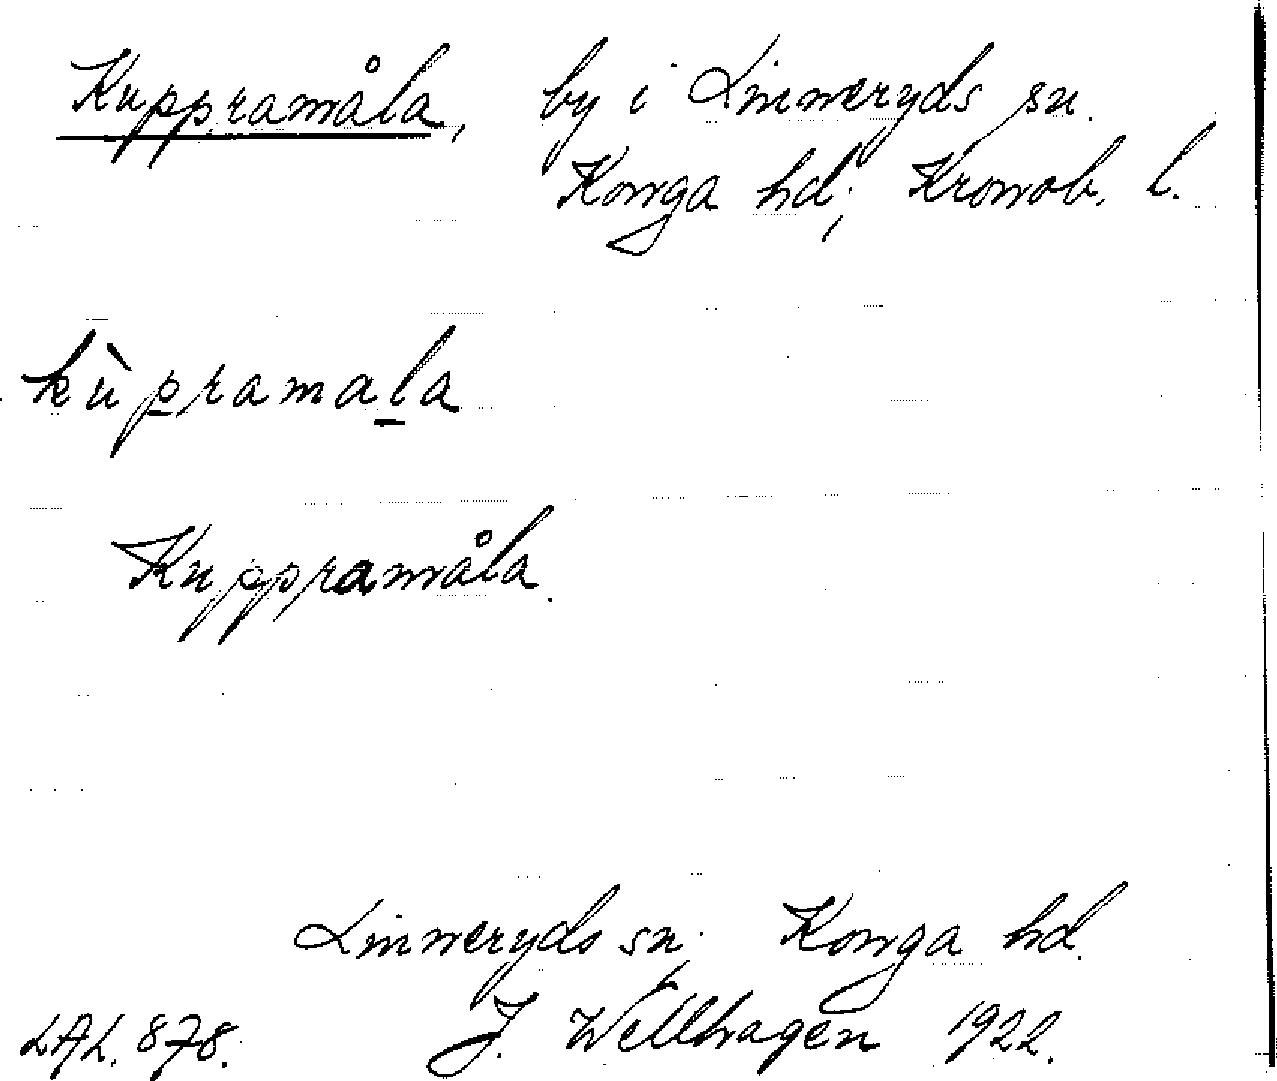 Kuppramåla, by i Linneryds sn.
Konga hd; Kronob. l.
kùpramala
Kuppramåla.
Linneryds sn; Konga hd.
LAL. 878. J. Wellhagen 1922.